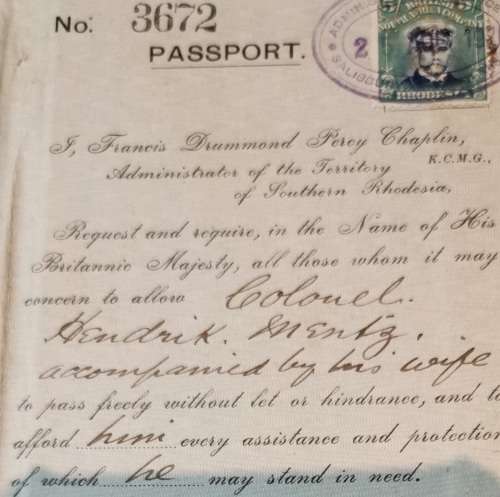 No: 3672
PASSPORT.
ADMIN
2
SALISBU
5/
5/
RHODESIA
I, Francis Drummond Percy Chaplin,
K.C.M.G.,
Administrator of the Territory
of Southern Rhodesia,
Request and require, in the Name of His
Britannic Majesty, all those whom it may
concern to allow Colonel.
Hendrik. Mentz.
accompanied by his wife
to pass freely without let or hindrance, and to
afford him every assistance and protection
of which he may stand in need.